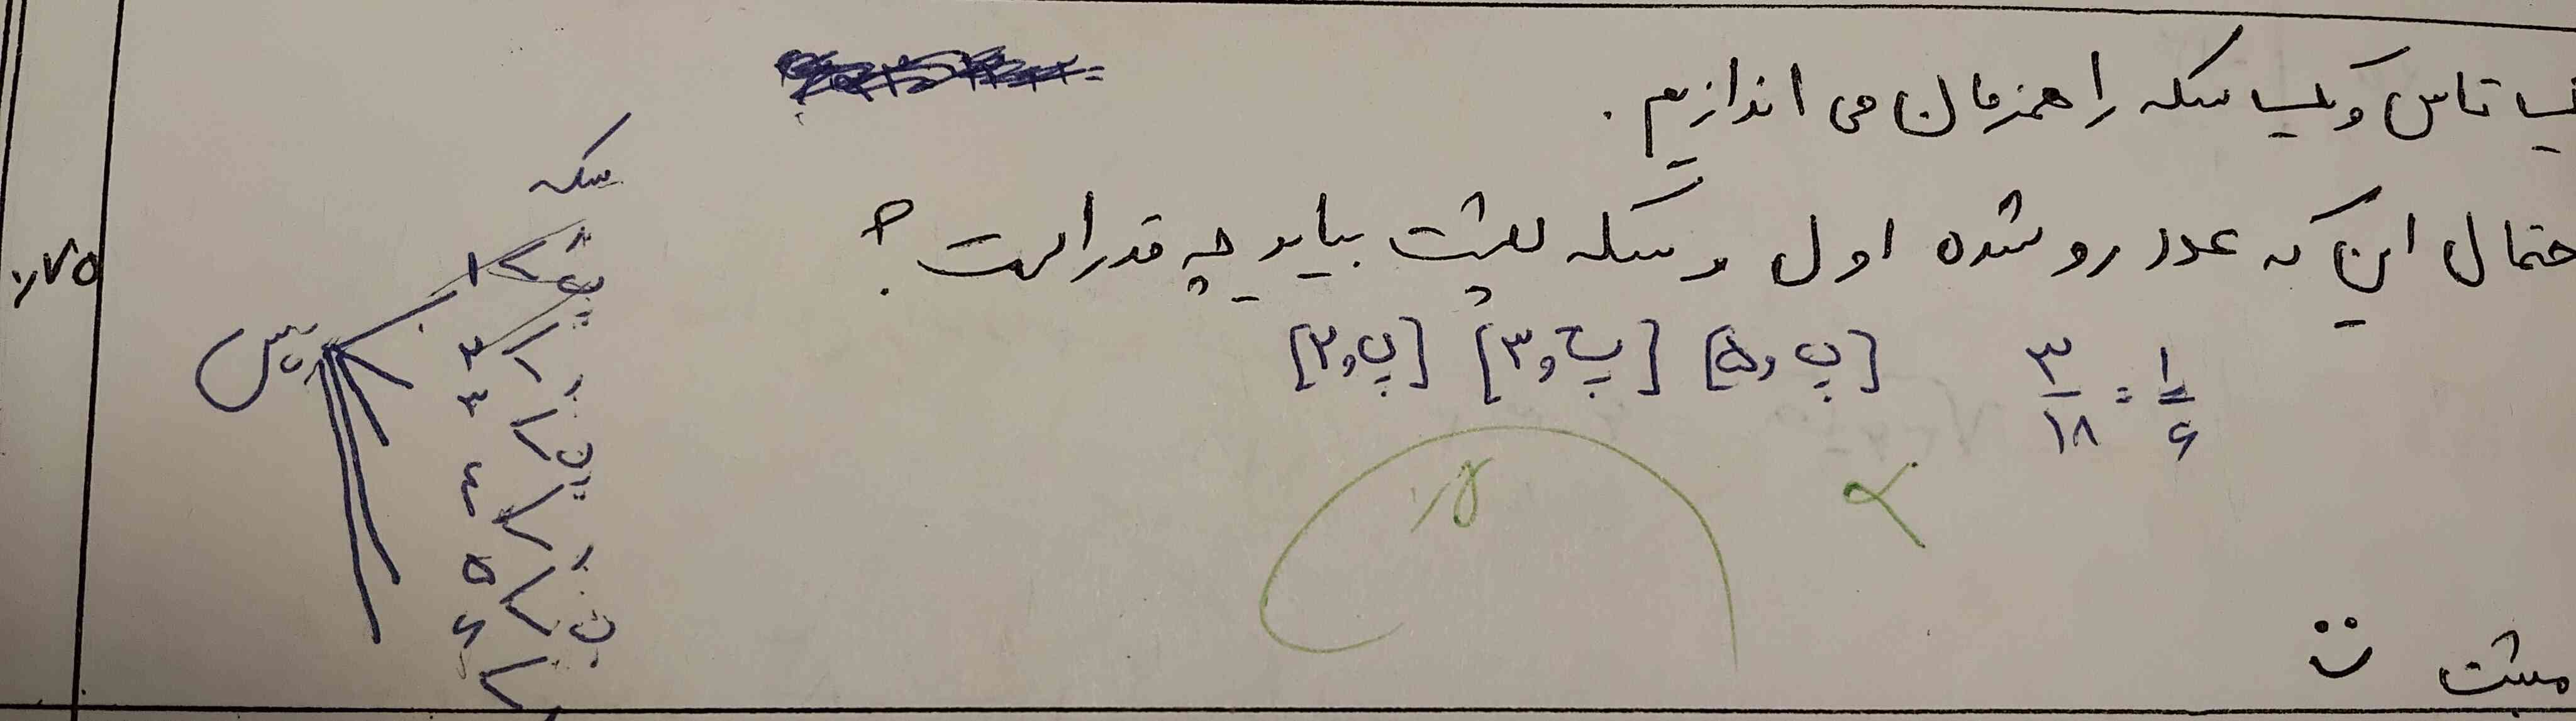 تاس و یک سکه را همزمان می اندازیم.
احتمال این که عدد رو شده اول و سکه پشت بیاید چه قدر است؟
۰/۷۵
[پ و ۵] [پ و ۳] [پ و ۲]
۳/۱۸ = ۱/۶
۰/۵
سکه
تاس
۱ ر پ
۲ ر
۳ پ
۴
۵ ر
۶ پ
مثبت